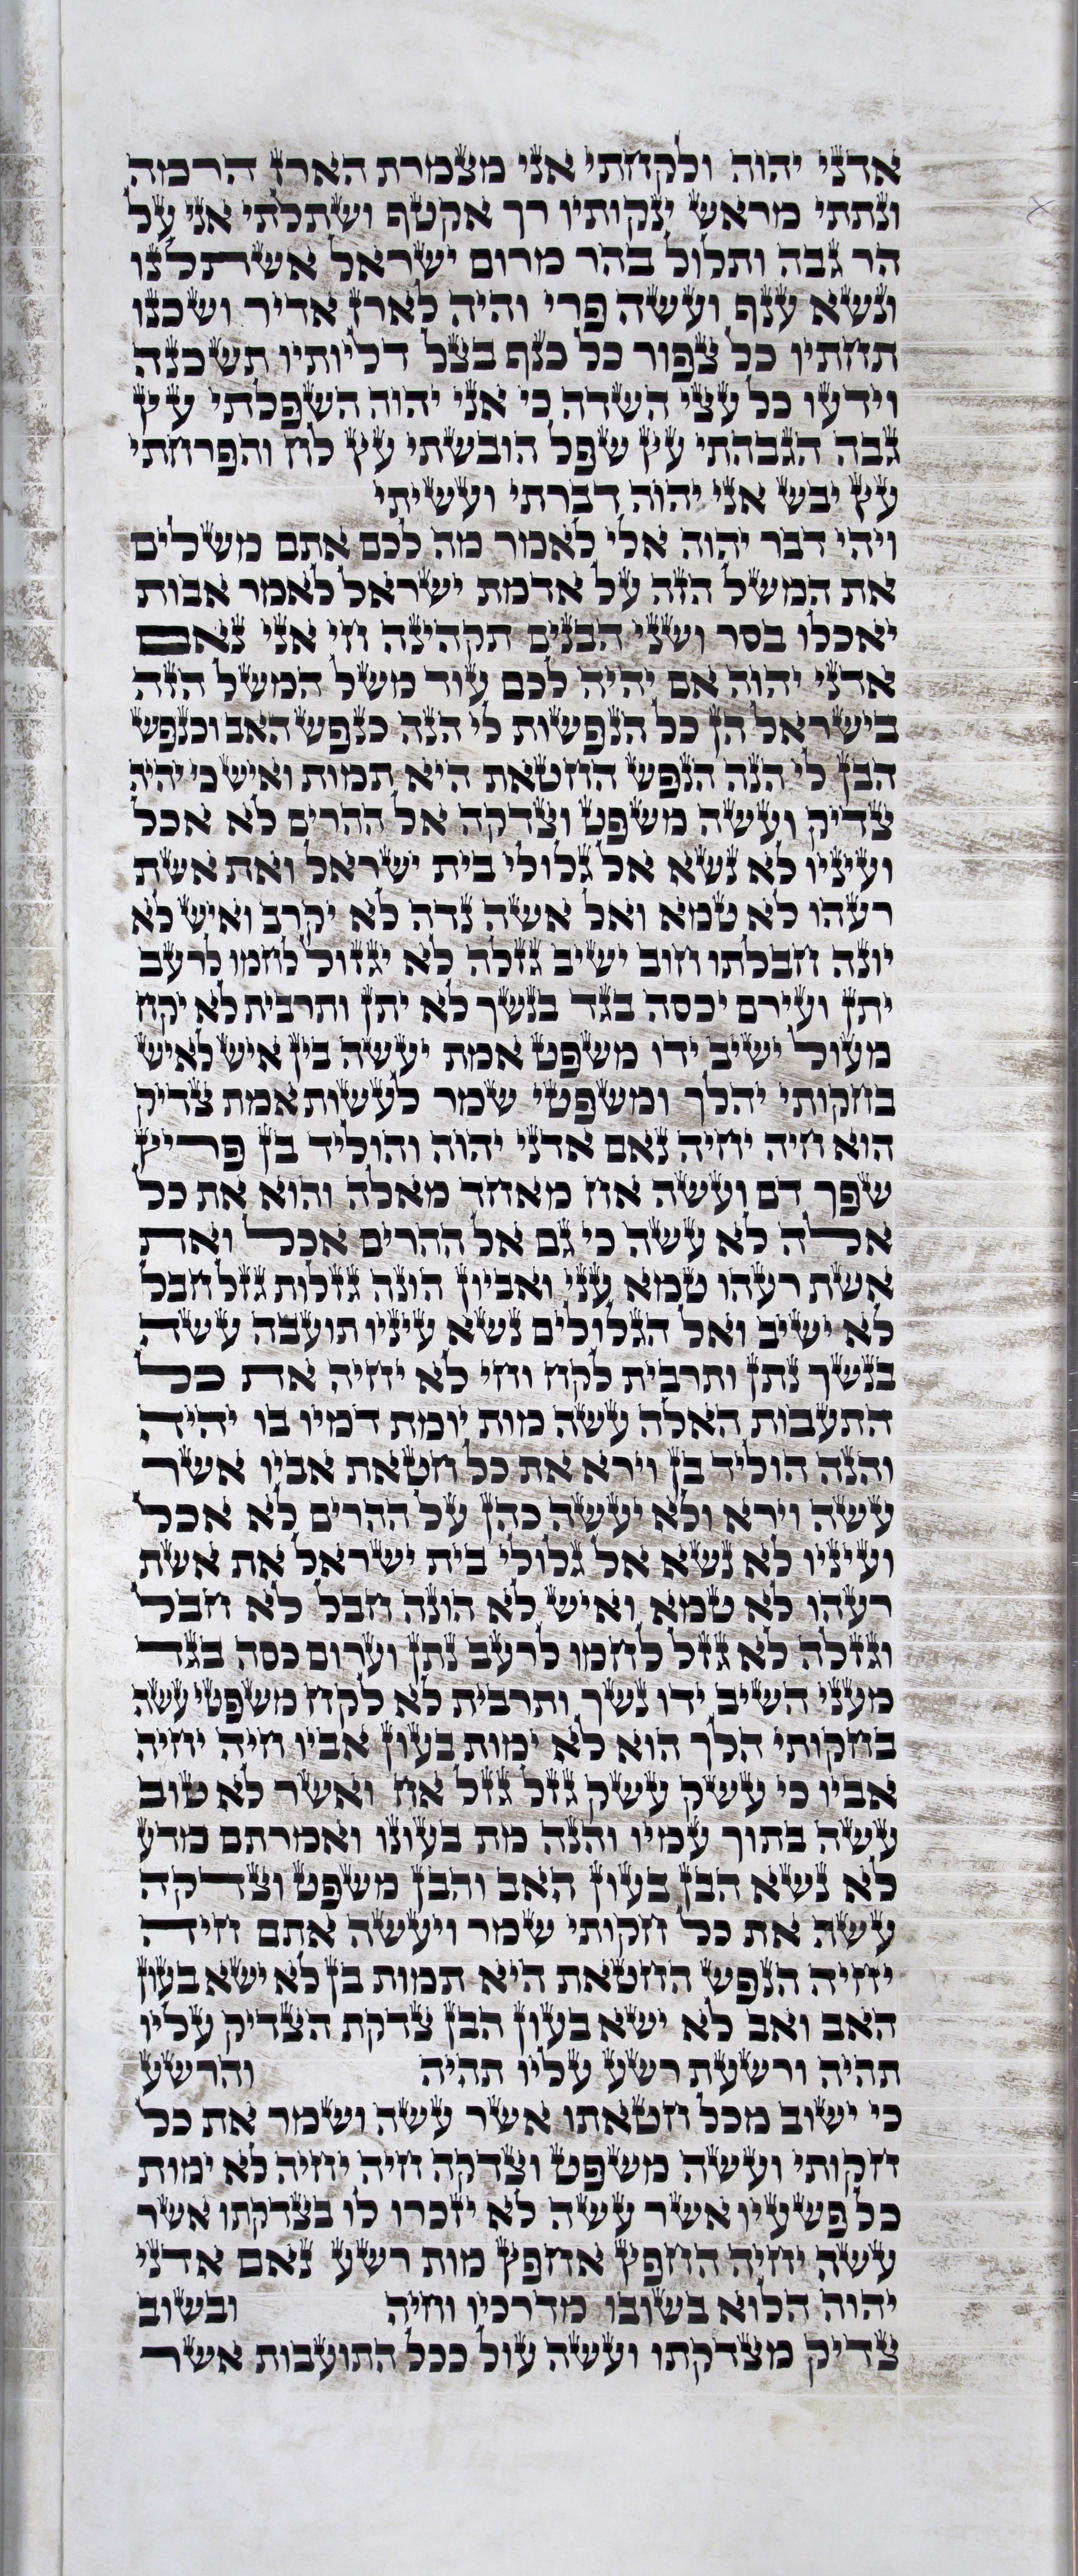 אדני יהוה ולקחתי אני מצמרת הארז הרמה
ונתתי מראש ינקותיו רך אקטף ושתלתי אני על
הר גבה ותלול בהר מרום ישראל אשתלנו
ונשא ענף ועשה פרי והיה לארז אדיר ושכנו
תחתיו כל צפור כל כנף בצל דליותיו תשכנה
וידעו כל עצי השדה כי אני יהוה השפלתי עץ
גבה הגבהתי עץ שפל הובשתי עץ לח והפרחתי
עץ יבש אני יהוה דברתי ועשיתי
ויהי דבר יהוה אלי לאמר מה לכם אתם משלים
את המשל הזה על אדמת ישראל לאמר אבות
יאכלו בסר ושני הבנים תקהינה חי אני נאם
אדני יהוה אם יהיה לכם עוד משל המשל הזה
בישראל הן כל הנפשות לי הנה כנפש האב וכנפש
הבן לי הנה הנפש החטאת היא תמות ואיש כי יהיה
צדיק ועשה משפט וצדקה אל ההרים לא אכל
ועיניו לא נשא אל גלולי בית ישראל ואת אשת
רעהו לא טמא ואל אשה נדה לא יקרב ואיש לא
יונה חבלתו חוב ישיב גזלה לא יגזול לחמו לרעב
יתן ועירם יכסה בגד בנשך לא יתן ותרבית לא יקח
מעול ישיב ידו משפט אמת יעשה בין איש לאיש
בחקותי יהלך ומשפטי שמר לעשות אמת צדיק
הוא חיה יחיה נאם אדני יהוה והוליד בן פריץ
שפך דם ועשה אח מאחד מאלה והוא את כל
אלה לא עשה כי גם אל ההרים אכל ואת
אשת רעהו טמא עני ואביון הונה גזלות גזל חבל
לא ישיב ואל הגלולים נשא עיניו תועבה עשה
בנשך נתן ותרבית לקח וחי לא יחיה את כל
התעבות האלה עשה מות יומת דמיו בו יהיה
והנה הוליד בן וירא את כל חטאת אביו אשר
עשה וירא ולא יעשה כהן על ההרים לא אכל
ועיניו לא נשא אל גלולי בית ישראל את אשת
רעהו לא טמא ואיש לא הונה חבל לא חבל
וגזלה לא גזל לחמו לרעב נתן וערום כסה בגד
מעני השיב ידו נשך ותרבית לא לקח משפטי עשה
בחקותי הלך הוא לא ימות בעון אביו חיה יחיה
אביו כי עשק עשק גזל גזל אח ואשר לא טוב
עשה בתוך עמיו והנה מת בעונו ואמרתם מדע
לא נשא הבן בעון האב והבן משפט וצדקה
עשה את כל חקותי שמר ויעשה אתם חיה
יחיה הנפש החטאת היא תמות בן לא ישא בעון
האב ואב לא ישא בעון הבן צדקת הצדיק עליו
תהיה ורשעת רשע עליו תהיה והרשע
כי ישוב מכל חטאתו אשר עשה ושמר את כל
חקותי ועשה משפט וצדקה חיה יחיה לא ימות
כל פשעיו אשר עשה לא יזכרו לו בצדקתו אשר
עשה יחיה החפץ אחפץ מות רשע נאם אדני
יהוה הלוא בשובו מדרכיו וחיה ובשוב
צדיק מצדקתו ועשה עול ככל התועבות אשר